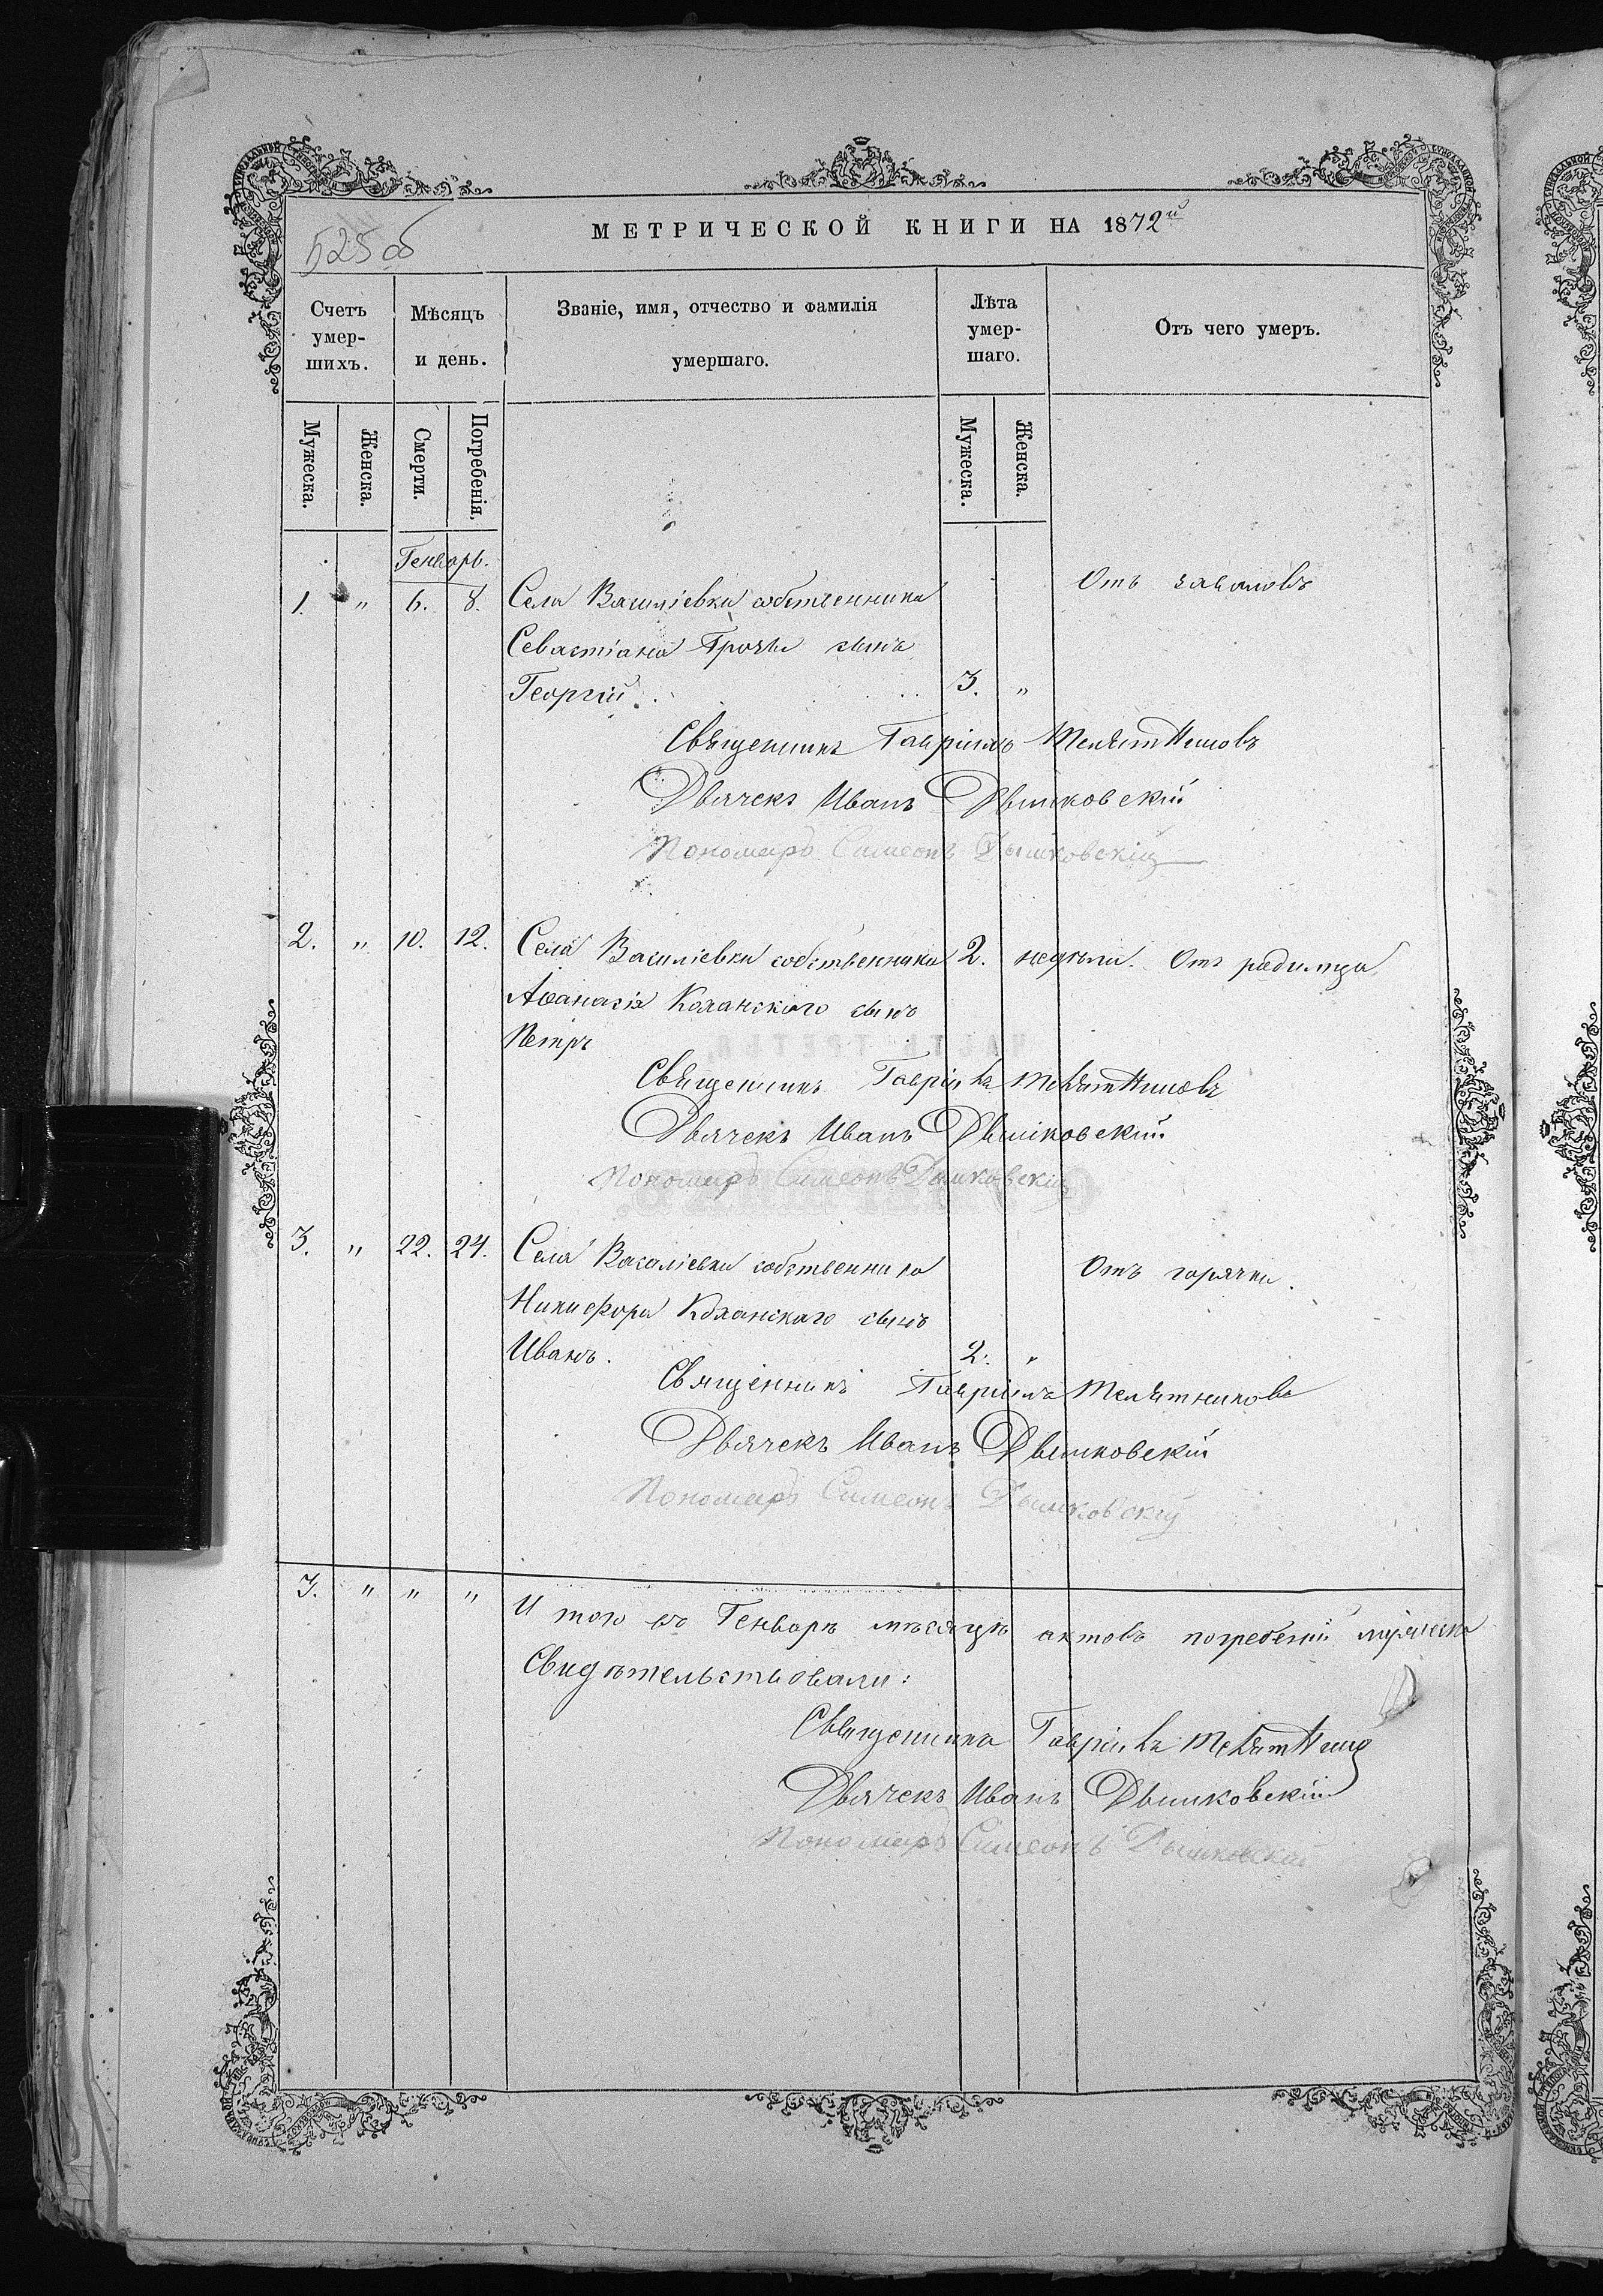 525 об
МЕТРИЧЕСКОЙ КНИГИ НА 1872й
Счетъ умер-шихъ.
Мѣсяцъ и день.
Званіе, имя, отчество и фамилія умершаго.
Лѣта умер-шаго.
Отъ чего умеръ.
Мужеска. Женска. Смерти. Погребенія. Мужеска. Женска.
Генварь.
1. " 6. 8. Села Василіевки собственника Отъ заваловъ
Севастіана сынъ
Георгій. 3. "
Священникъ Гавріилъ Телятниковъ
Дьячекъ Иванъ Дышковскій
Пономарь Симеонъ Дышковскій
2. " 10. 12. Села Василіевки собственника 2. недѣли. Отъ родимца
Аѳанасія Коханскаго сынъ
Петръ
Священникъ Гавріилъ Телятниковъ
Дьячекъ Иванъ Дышковскій
Пономарь Симеонъ Дышковскій
3. " 22. 24. Села Василіевки собственника Отъ горячки.
Никифора Коханскаго сынъ
Иванъ. 2. "
Священникъ Гавріилъ Телятниковъ
Дьячекъ Иванъ Дышковскій
Пономарь Симеонъ Дышковскій
3. " " " Итого въ Генварѣ мѣсяцѣ актовъ погребеній
Свидѣтельствовали:
Священникъ Гавріилъ Телятник
Дьячекъ Иванъ Дышковскій
Пономарь Симеонъ Дышковскій